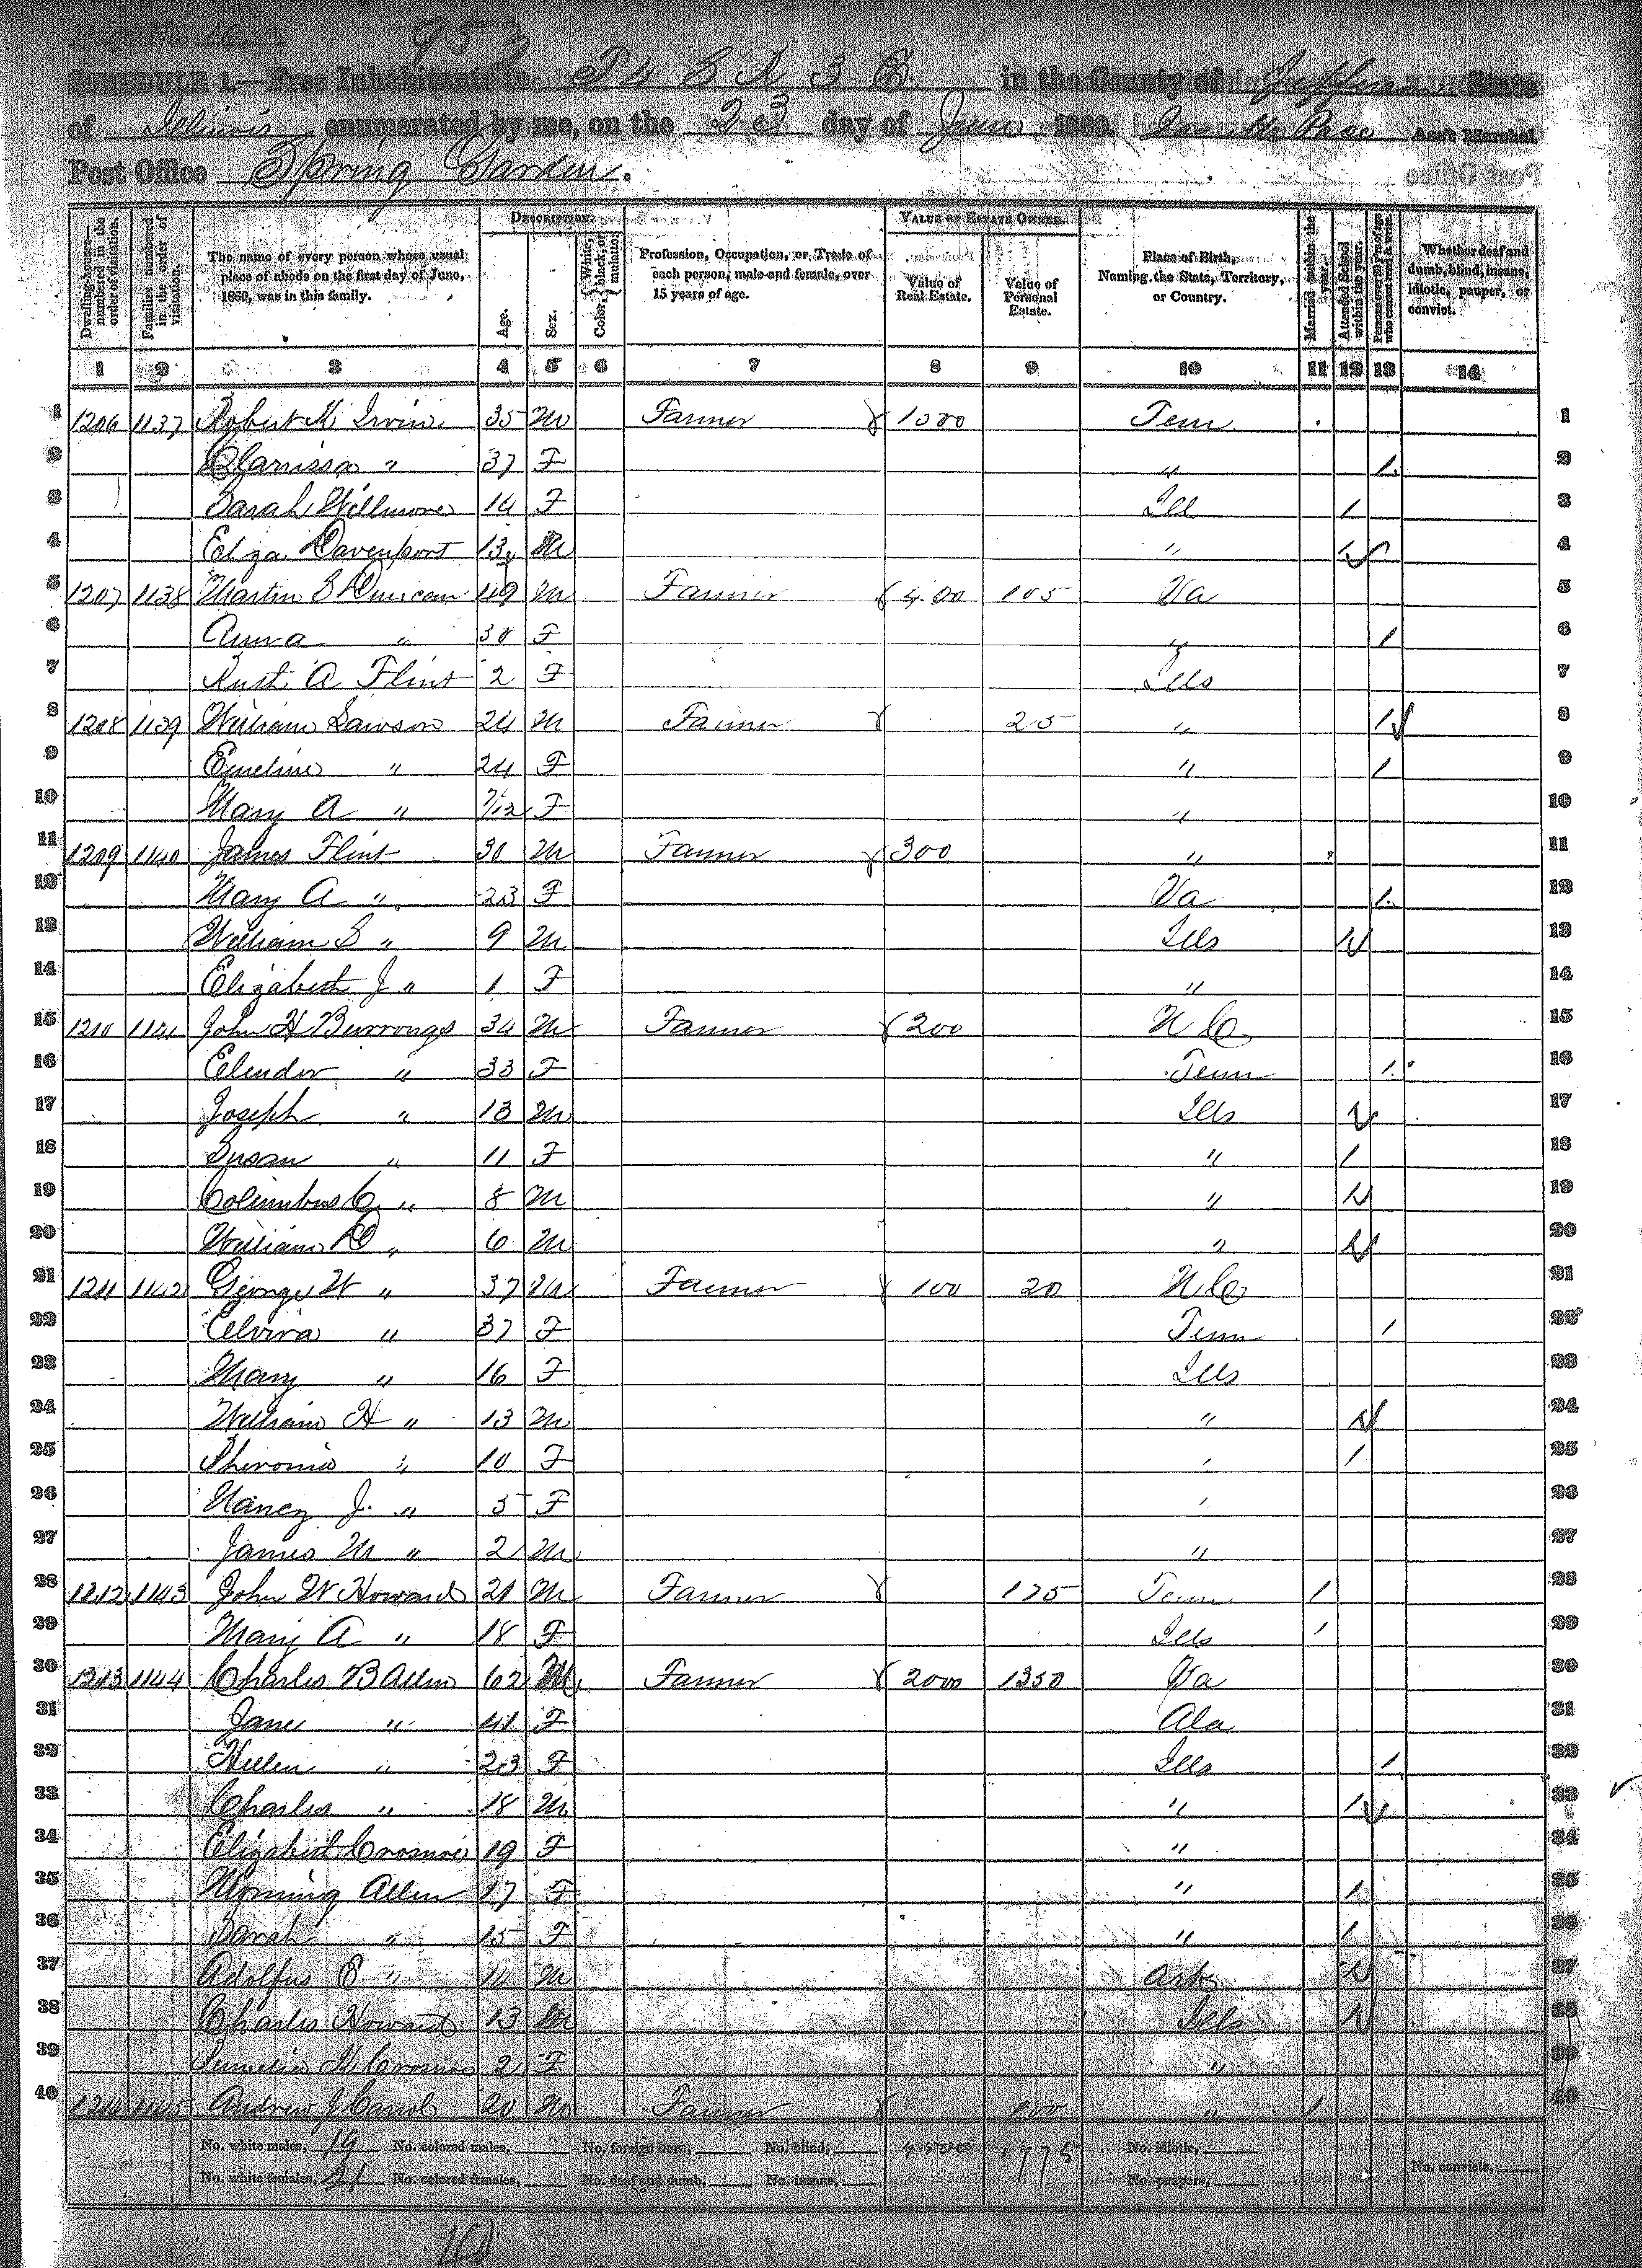 Page No. 165
953
SCHEDULE 1.—Free Inhabitants in T 4 S R 3 E in the County of Jefferson State
of Illinois enumerated by me, on the 23 day of June 1860. Pace Ass't Marshal
Post Office Spring Garden.
Dwelling-houses—numbered in the order of visitation.
Families numbered in the order of visitation.
The name of every person whose usual place of abode on the first day of June, 1860, was in this family.
DESCRIPTION.
Age.
Sex.
Color, {White, black, or mulatto.
Profession, Occupation, or Trade of each person, male and female, over 15 years of age.
VALUE OF ESTATE OWNED.
Value of Real Estate.
Value of Personal Estate.
Place of Birth, Naming the State, Territory, or Country.
Married within the year.
Attended School within the year.
Persons over 20 y'rs of age who cannot read & write.
Whether deaf and dumb, blind, insane, idiotic, pauper, or convict.
1 2 3 4 5 6 7 8 9 10 11 12 13 14
1 1206 1137 Robert Irvin 35 M Farmer Tenn 1
2 Clarissa " 37 F " 1 2
3 Sarah 14 F Ill 1 3
4 Davenport 13 M " 1 4
5 1207 1138 Martin S Duncan 49 M Farmer 400 105 Va 5
6 Anna " 38 F " 1 6
7 A Flint 2 F Ills 7
8 1208 1139 William Lawson 24 M Farmer 25 " 1 8
9 Emeline " 24 F " 1 9
10 Mary A " 7/12 F " 10
11 1209 1140 James Flint 30 M Farmer 300 " 11
12 Mary A " 23 F Va 1 12
13 William S " 9 M Ills 1 13
14 Elizabeth J " 1 F " 14
15 1210 1141 John H Burroughs 34 M Farmer 200 N C 15
16 Elender " 33 F Tenn 1 16
17 Joseph " 13 M Ills 1 17
18 Susan " 11 F " 1 18
19 Columbus C " 8 M " 1 19
20 William D " 6 M " 1 20
21 1211 1142 George W " 37 M Farmer 100 20 N C 21
22 Elvira " 37 F Tenn 1 22
23 Mary " 16 F Ills 23
24 William H " 13 M " 1 24
25 " 10 F " 1 25
26 Nancy J. " 5 F " 26
27 James M " 2 M " 27
28 1212 1143 John W Howard 21 M Farmer 175 Tenn 1 28
29 Mary A " 18 F Ills 1 29
30 1213 1144 Charles B Allen 62 M Farmer 2000 1350 Va 30
31 Jane " 41 F Ala 31
32 Hellen " 23 F Ills 1 32
33 Charles " 18 M " 1 33
34 Elizabeth 19 F " 34
35 Morning Allen 17 F " 1 35
36 Sarah " 15 F " 1 36
37 Adolfus E " 14 M Ark 1 37
38 Charles Howard 13 M Ills 1 38
39 2 F " 39
40 1214 1145 Andrew J Carrol 20 M Farmer 100 " 1 40
No. white males, 19 No. colored males, No. foreign born, No. blind, 1775 No. idiotic,
No. white females, 21 No. colored females, No. deaf and dumb, No. insane, No. paupers, No. convicts,
40